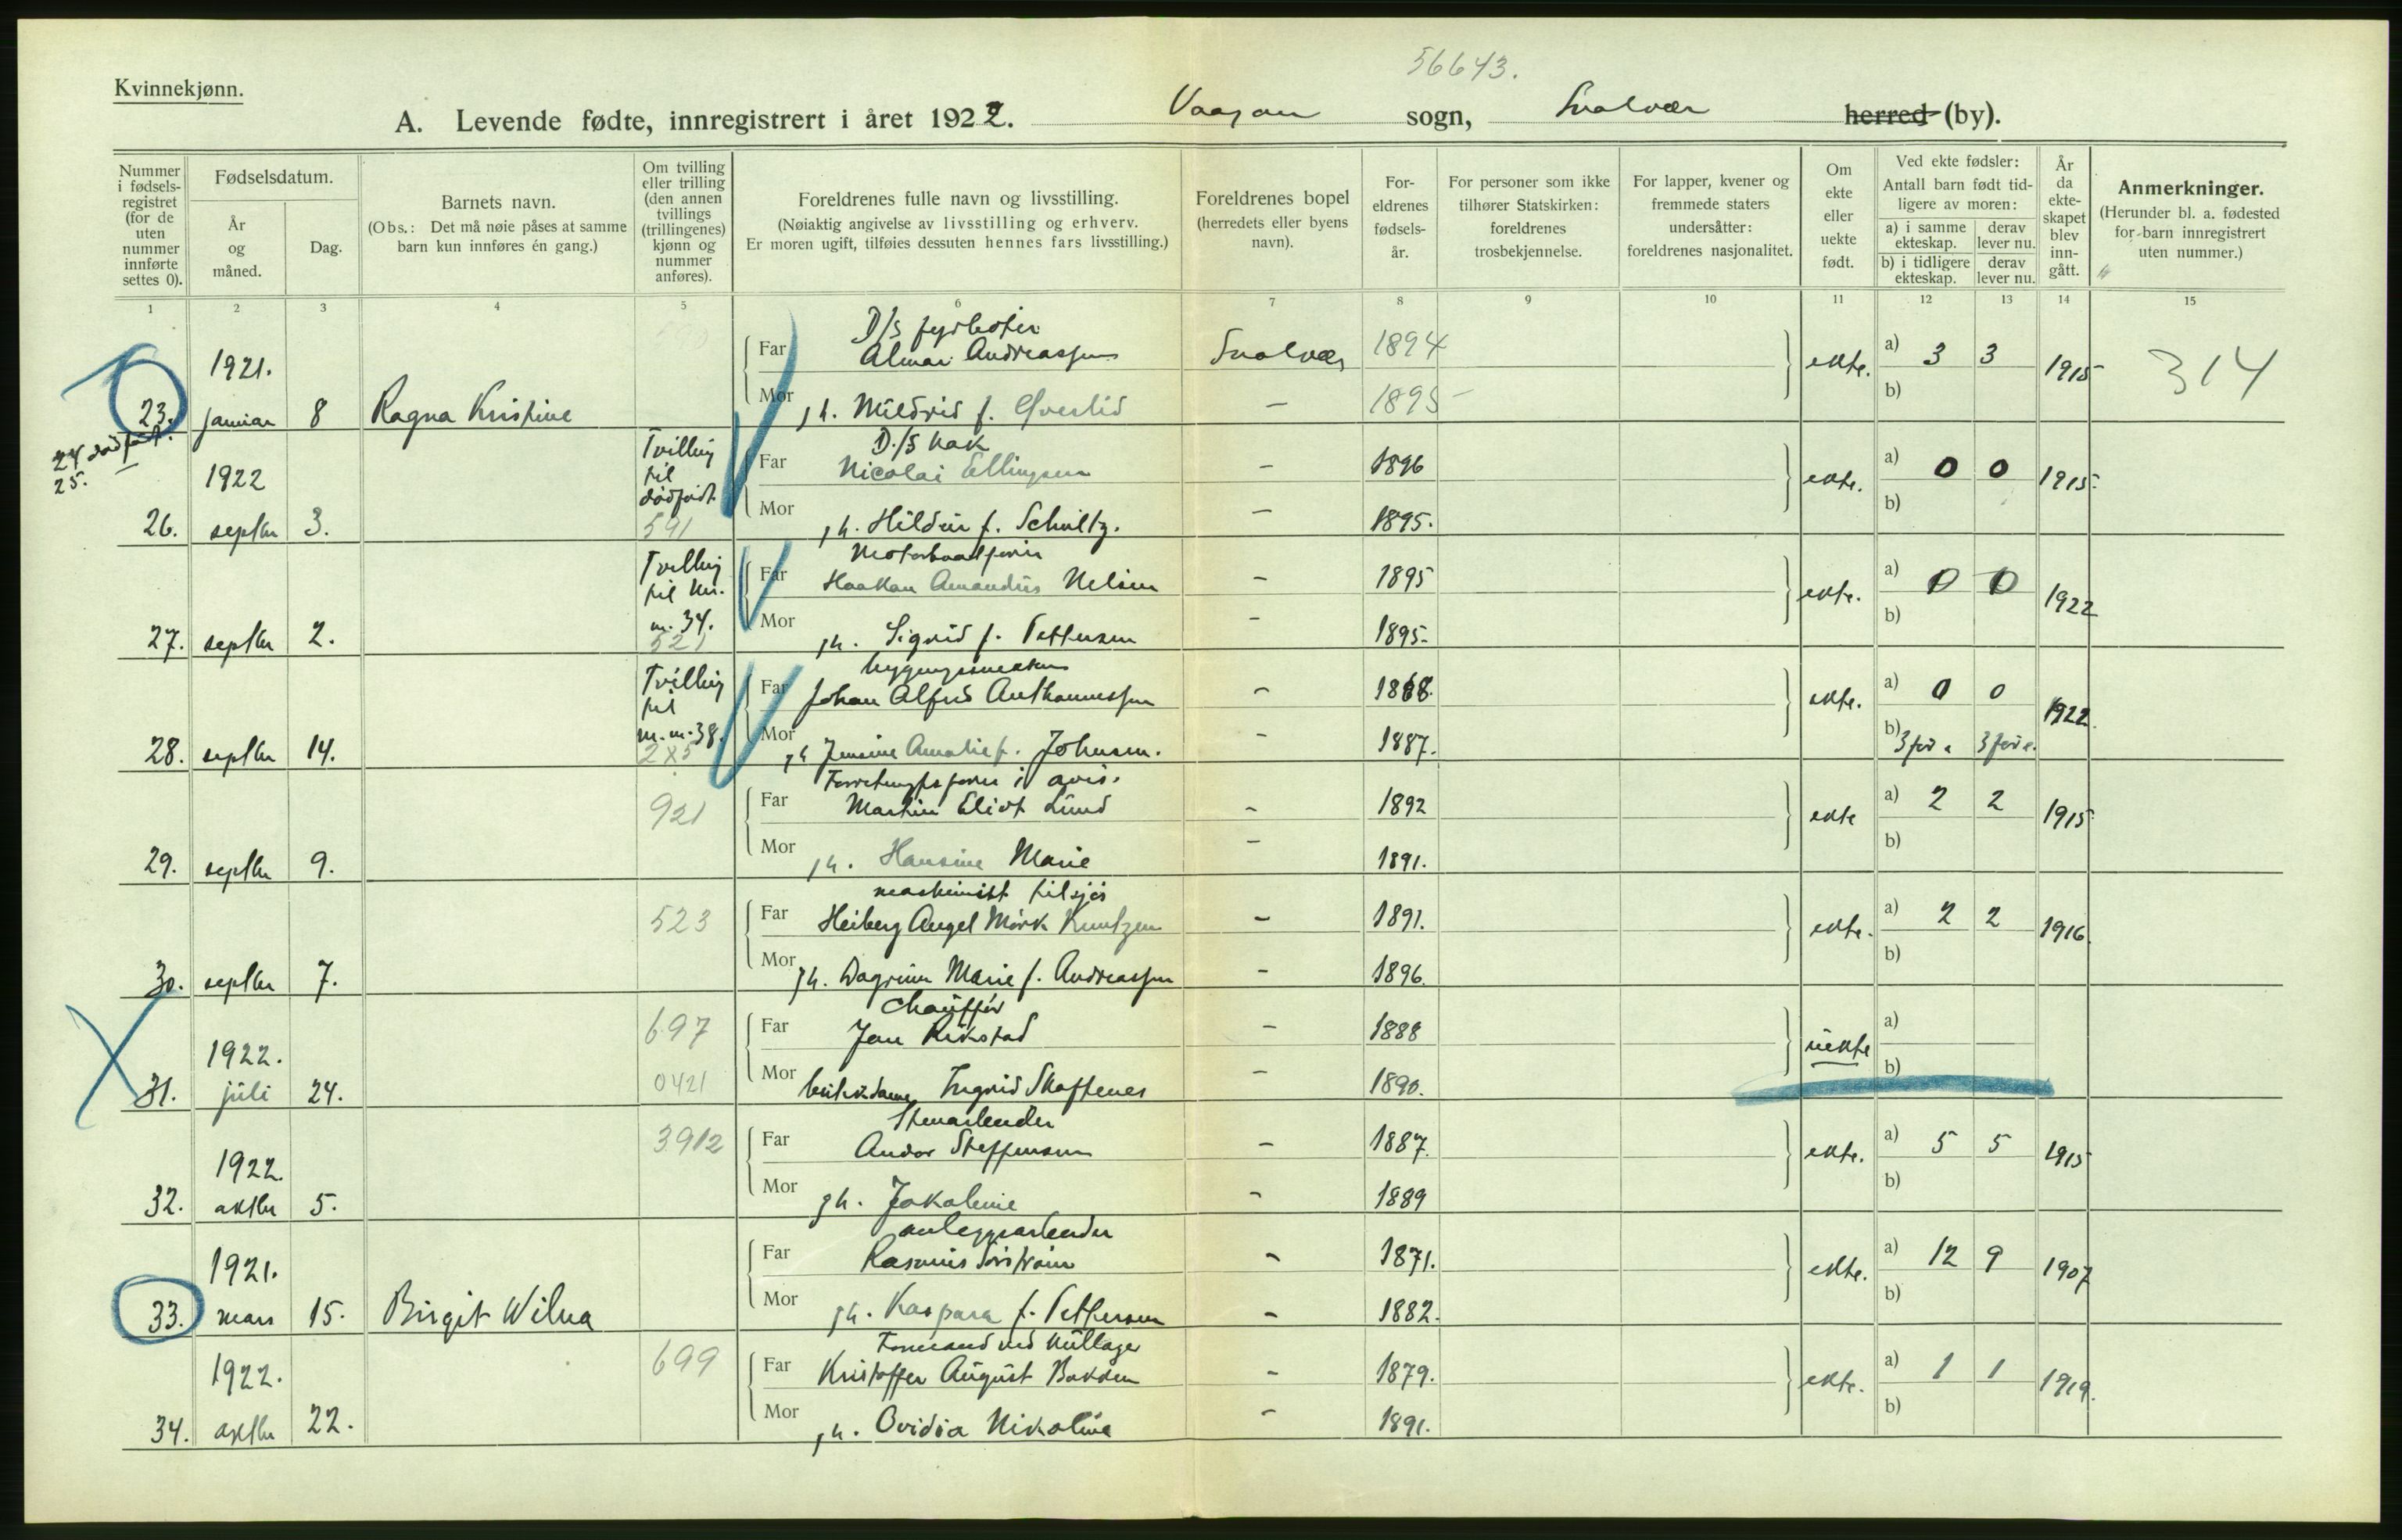 56643.
Kvinnekjønn.
A. Levende fødte, innregistrert i året 1922. Vaagan sogn, Svolvær herred (by).
Nummer i fødsels-registret (for de uten nummer innførte settes 0).
Fødselsdatum.
År og måned.
Dag.
Barnets navn.
(Obs.: Det må nøie påses at samme barn kun innføres én gang.)
Om tvilling eller trilling (den annen tvillings (trillingenes) kjønn og nummer anføres).
Foreldrenes fulle navn og livsstilling.
(Nøiaktig angivelse av livsstilling og erhverv.
Er moren ugift, tilføies dessuten hennes fars livsstilling.)
Foreldrenes bopel
(herredets eller byens navn).
For-eldrenes fødsels-år.
For personer som ikke tilhører Statskirken: foreldrenes trosbekjennelse.
For lapper, kvener og fremmede staters undersåtter: foreldrenes nasjonalitet.
Om ekte eller uekte født.
Ved ekte fødsler:
Antall barn født tid-ligere av moren:
a) i samme ekteskap.
derav lever nu.
b) i tidligere ekteskap.
derav lever nu.
År da ekte-skapet blev inn-gått.
Anmerkninger.
(Herunder bl. a. fødested for barn innregistrert uten nummer.)
1 2 3 4 5 6 7 8 9 10 11 12 13 14 15
D/s fyrbøter
1921. Far Almar Andreassen Svolvær 1894 ekte. a) 3 3 1915 314
23. januar 8 Ragna Kristine Mor gh. Mildrid f. 1895 b)
24 dødfødt.
25.
Tvilling til dødfødt 591
1922 Far Nicolai Ellingsen - 1896 ekte. a) 0 0 1915
26. septbr 3. Mor gh. Hildur f. Schultz. - 1895. b)
Tvilling til m. 34. 521
Motorbaatfører
Far Haakon Amandus Nelsen - 1895 ekte. a) 0 0 1922
27. septbr 2. Mor gh. Sigrid f. Pettersen - 1895. b)
Tvilling til m. 38. 2x5
bygningssnekker
Far Johan Alfred Anthonnessen - 1868. ekte. a) 0 0 1922.
28. septbr 14. Mor gh Jensine Amalie f. Johnsen. - 1887. b) 3 før e. 3 før e.
Forretningsfører i avis.
921 Far Martin Eliot Lund - 1892 ekte a) 2 2 1915
29. septbr 9. Mor gh. Hansine Marie - 1891. b)
maskinist tilsjøs
523 Far Heiberg Angel Mørk Knutzen - 1891. ekte. a) 2 2 1916.
30. septbr 7. Mor gh. Dagrun Marie f. Andreassen - 1896. b)
Chauffør
697 1922. Far Jan Rikstad - 1888 uekte a)
31. juli 24. 0421 Mor butikdame Ingrid Skaftenes - 1890. b)
Stenarbeider
3912 1922. Far Andor Steffensen - 1887. ekte. a) 5 5 1915
32. oktbr 5. Mor gh. Jakobine - 1889 b)
anleggsarbeider
1921. Far Rasmus Sørstrøm - 1871. ekte. a) 12 9 1907
33. mars 15. Birgit Wilna Mor gh. Kaspara f. Pettersen - 1882. b)
Formand ved kullager
699 1922. Far Kristoffer August Bakken - 1879. ekte. a) 1 1 1919.
34. oktbr 22. Mor gh. Ovidia Nikoline - 1891. b)